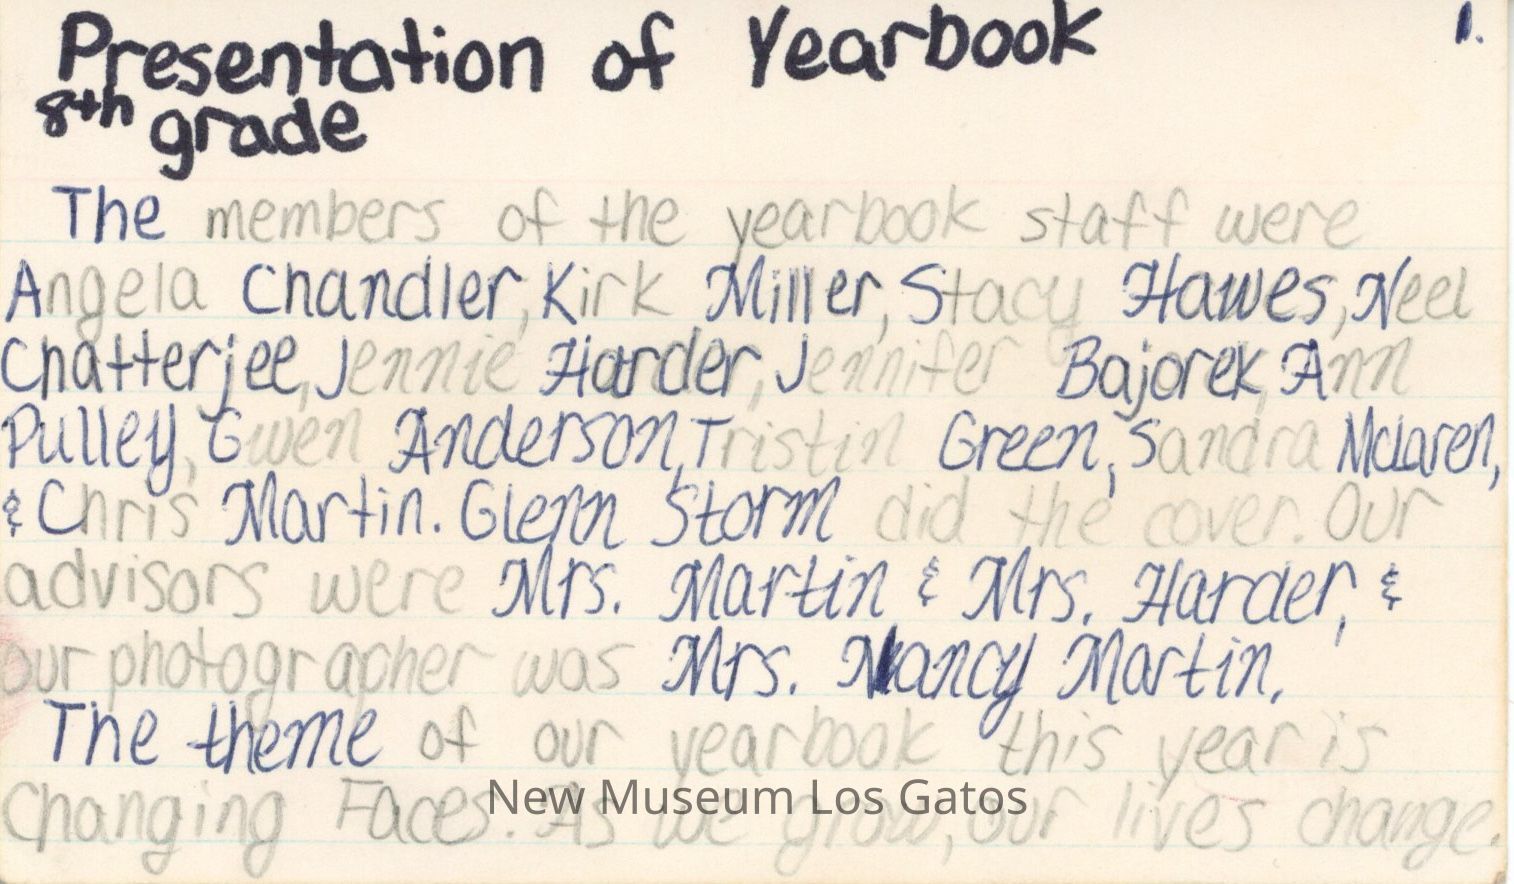 1.
Presentation of Yearbook
8th grade
The members of the yearbook staff were
Angela Chandler, Kirk Miller, Stacy Hawes, Neel
Chatterjee, Jennie Harder, Jennifer Bajorek, Ann
Pulley, Gwen Anderson, Tristin Green, Sandra McLaren,
& Chris Martin. Glenn Storm did the cover. Our
advisors were Mrs. Martin & Mrs. Harder, &
our photographer was Mrs. Nancy Martin.
The theme of our yearbook this year is
Changing Faces. As we grow, our lives change.
New Museum Los Gatos